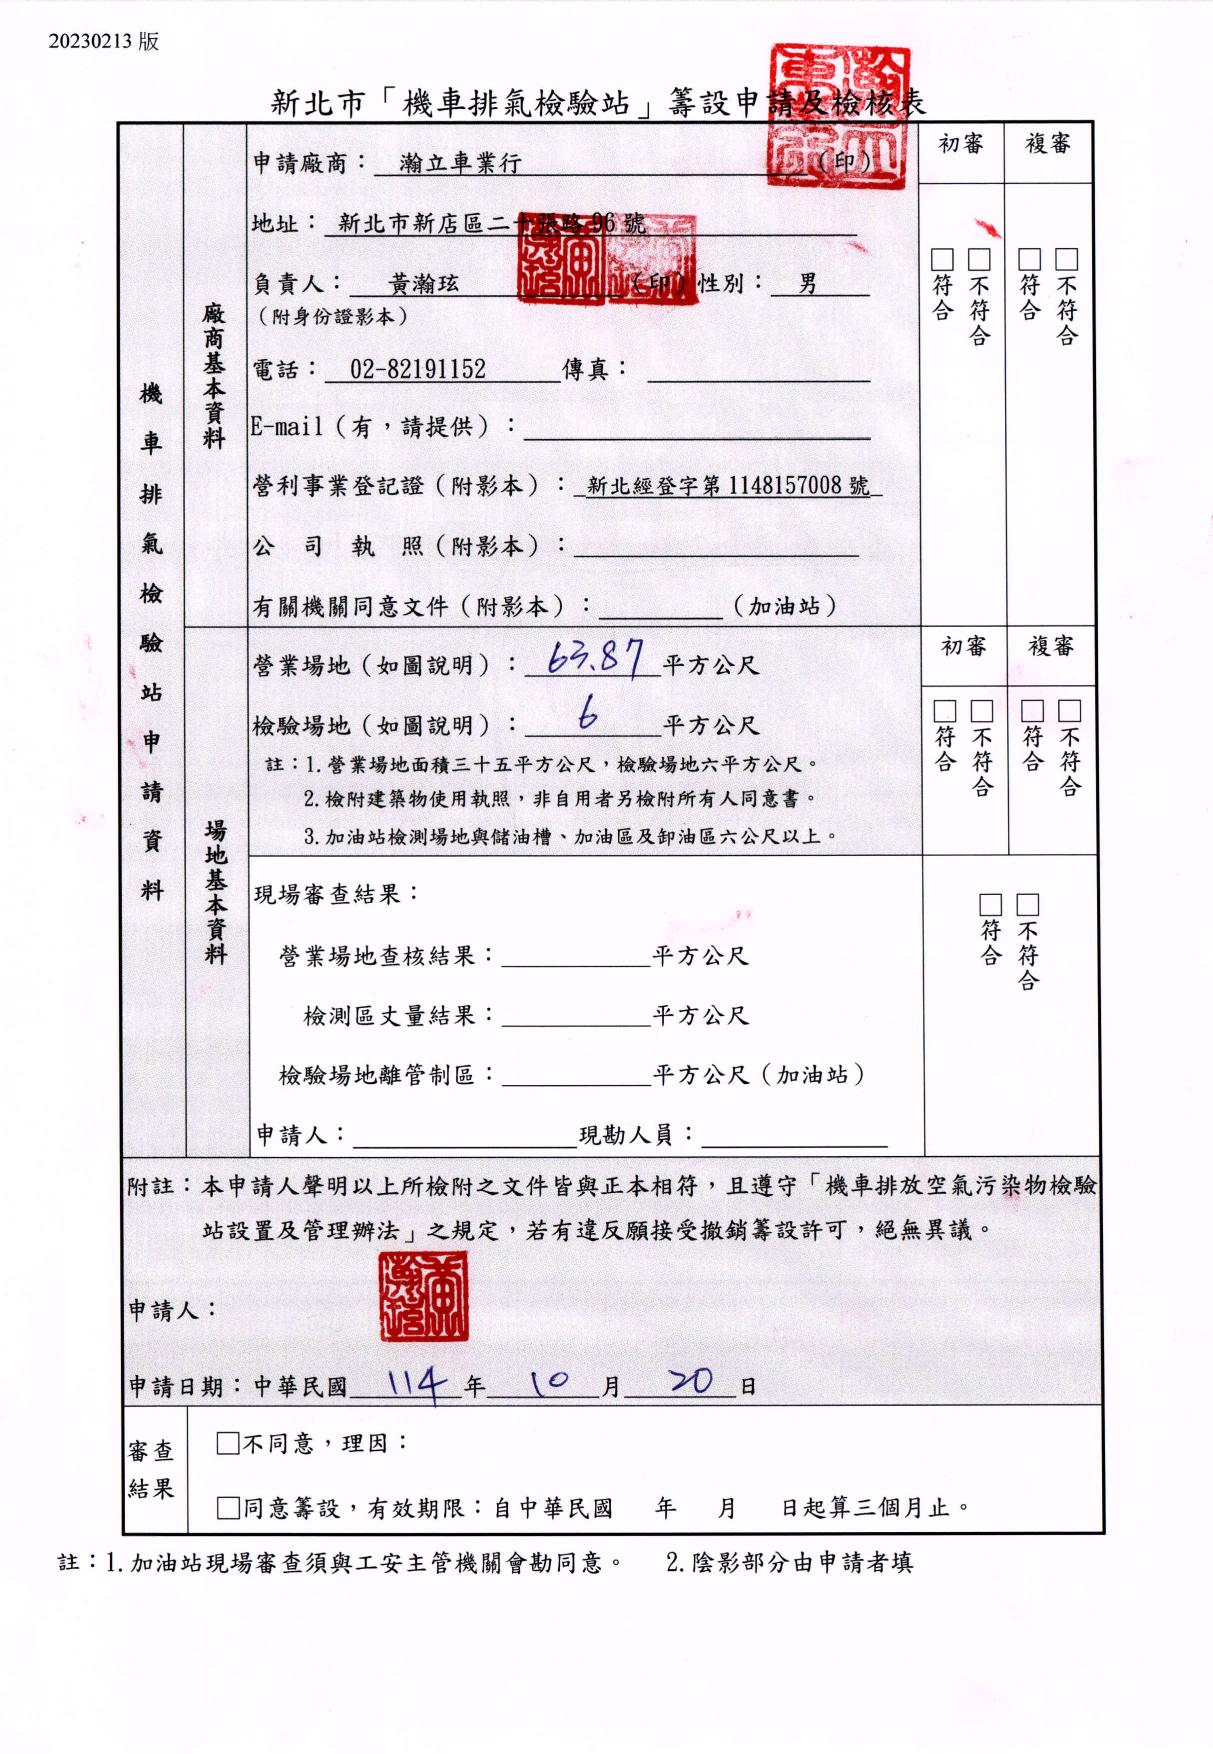 20230213 版
新北市「機車排氣檢驗站」籌設申請及檢核表
機車排氣檢驗站申請資料
廠商基本資料
申請廠商： 瀚立車業行 （印）
地址： 新北市新店區二十張路 96 號
負責人： 黃瀚玹 （印）性別： 男
（附身份證影本）
電話： 02-82191152 傳真：
E-mail（有，請提供）：
營利事業登記證（附影本）： 新北經登字第 1148157008 號
公司執照（附影本）：
有關機關同意文件（附影本）： （加油站）
初審 複審
□符合 □不符合 □符合 □不符合
場地基本資料
營業場地（如圖說明）： 63.87 平方公尺
檢驗場地（如圖說明）： 6 平方公尺
註：1.營業場地面積三十五平方公尺，檢驗場地六平方公尺。
2.檢附建築物使用執照，非自用者另檢附所有人同意書。
3.加油站檢測場地與儲油槽、加油區及卸油區六公尺以上。
初審 複審
□符合 □不符合 □符合 □不符合
現場審查結果：
營業場地查核結果： 平方公尺
檢測區丈量結果： 平方公尺
檢驗場地離管制區： 平方公尺（加油站）
申請人： 現勘人員：
□符合 □不符合
附註：本申請人聲明以上所檢附之文件皆與正本相符，且遵守「機車排放空氣污染物檢驗
站設置及管理辦法」之規定，若有違反願接受撤銷籌設許可，絕無異議。
申請人：
申請日期：中華民國 114 年 10 月 20 日
審查
結果
□不同意，理因：
□同意籌設，有效期限：自中華民國 年 月 日起算三個月止。
註：1.加油站現場審查須與工安主管機關會勘同意。 2.陰影部分由申請者填